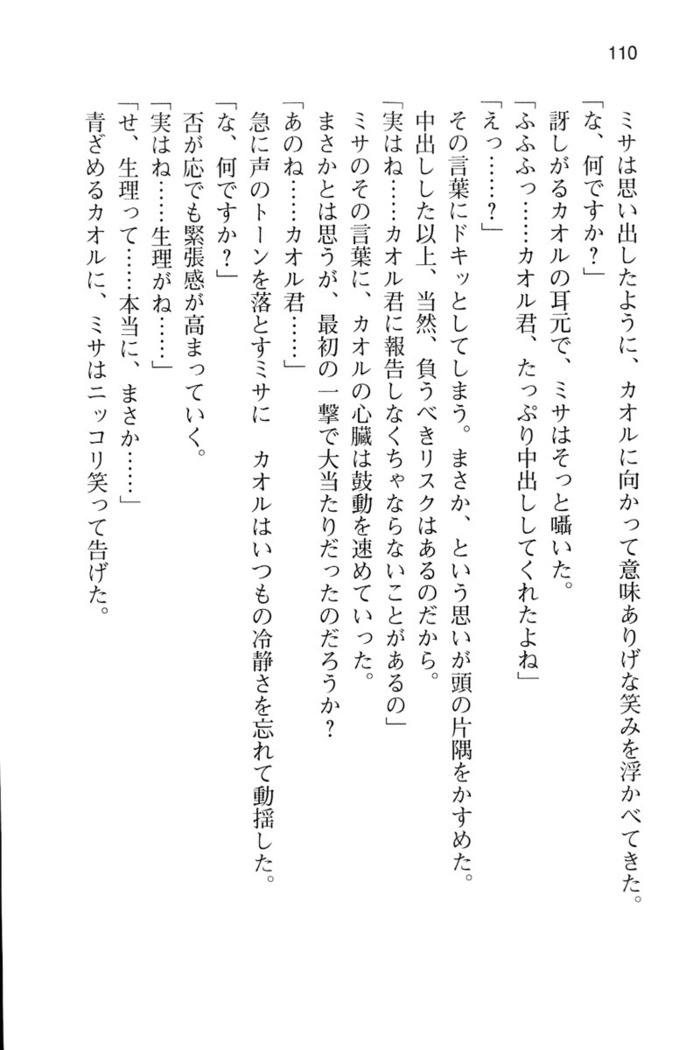 110
ミサは思い出したように、カオルに向かって意味ありげな笑みを浮かべてきた。
「な、何ですか？」
訝しがるカオルの耳元で、ミサはそっと囁いた。
「ふふふっ……カオル君、たっぷり中出ししてくれたよね」
「えっ……？」
その言葉にドキッとしてしまう。まさか、という思いが頭の片隅をかすめた。
中出しした以上、当然、負うべきリスクはあるのだから。
「実はね……カオル君に報告しなくちゃならないことがあるの」
ミサのその言葉に、カオルの心臓は鼓動を速めていった。
まさかとは思うが、最初の一撃で大当たりだったのだろうか？
「あのね……カオル君……」
急に声のトーンを落とすミサに　カオルはいつもの冷静さを忘れて動揺した。
「な、何ですか？」
否が応でも緊張感が高まっていく。
「実はね……生理がね……」
「せ、生理って……本当に、まさか……」
青ざめるカオルに、ミサはニッコリ笑って告げた。